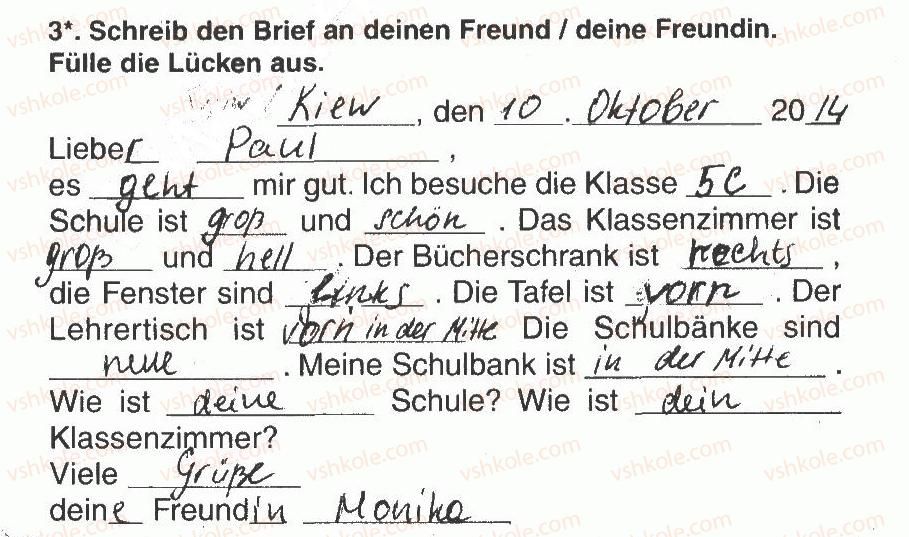 3*. Schreib den Brief an deinen Freund / deine Freundin.
Fülle die Lücken aus.
Kiew, den 10. Oktober 2014
Lieber Paul,
es geht mir gut. Ich besuche die Klasse 5C. Die
Schule ist groß und schön. Das Klassenzimmer ist
groß und hell. Der Bücherschrank ist rechts,
die Fenster sind links. Die Tafel ist vorn. Der
Lehrertisch ist vorn in der Mitte Die Schulbänke sind
neue. Meine Schulbank ist in der Mitte.
Wie ist deine Schule? Wie ist dein
Klassenzimmer?
Viele Grüße
deine Freundin Monika